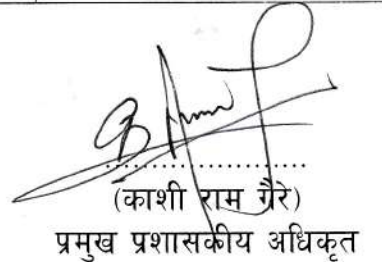 ....................
(काशी राम गैरे)
प्रमुख प्रशासकीय अधिकृत